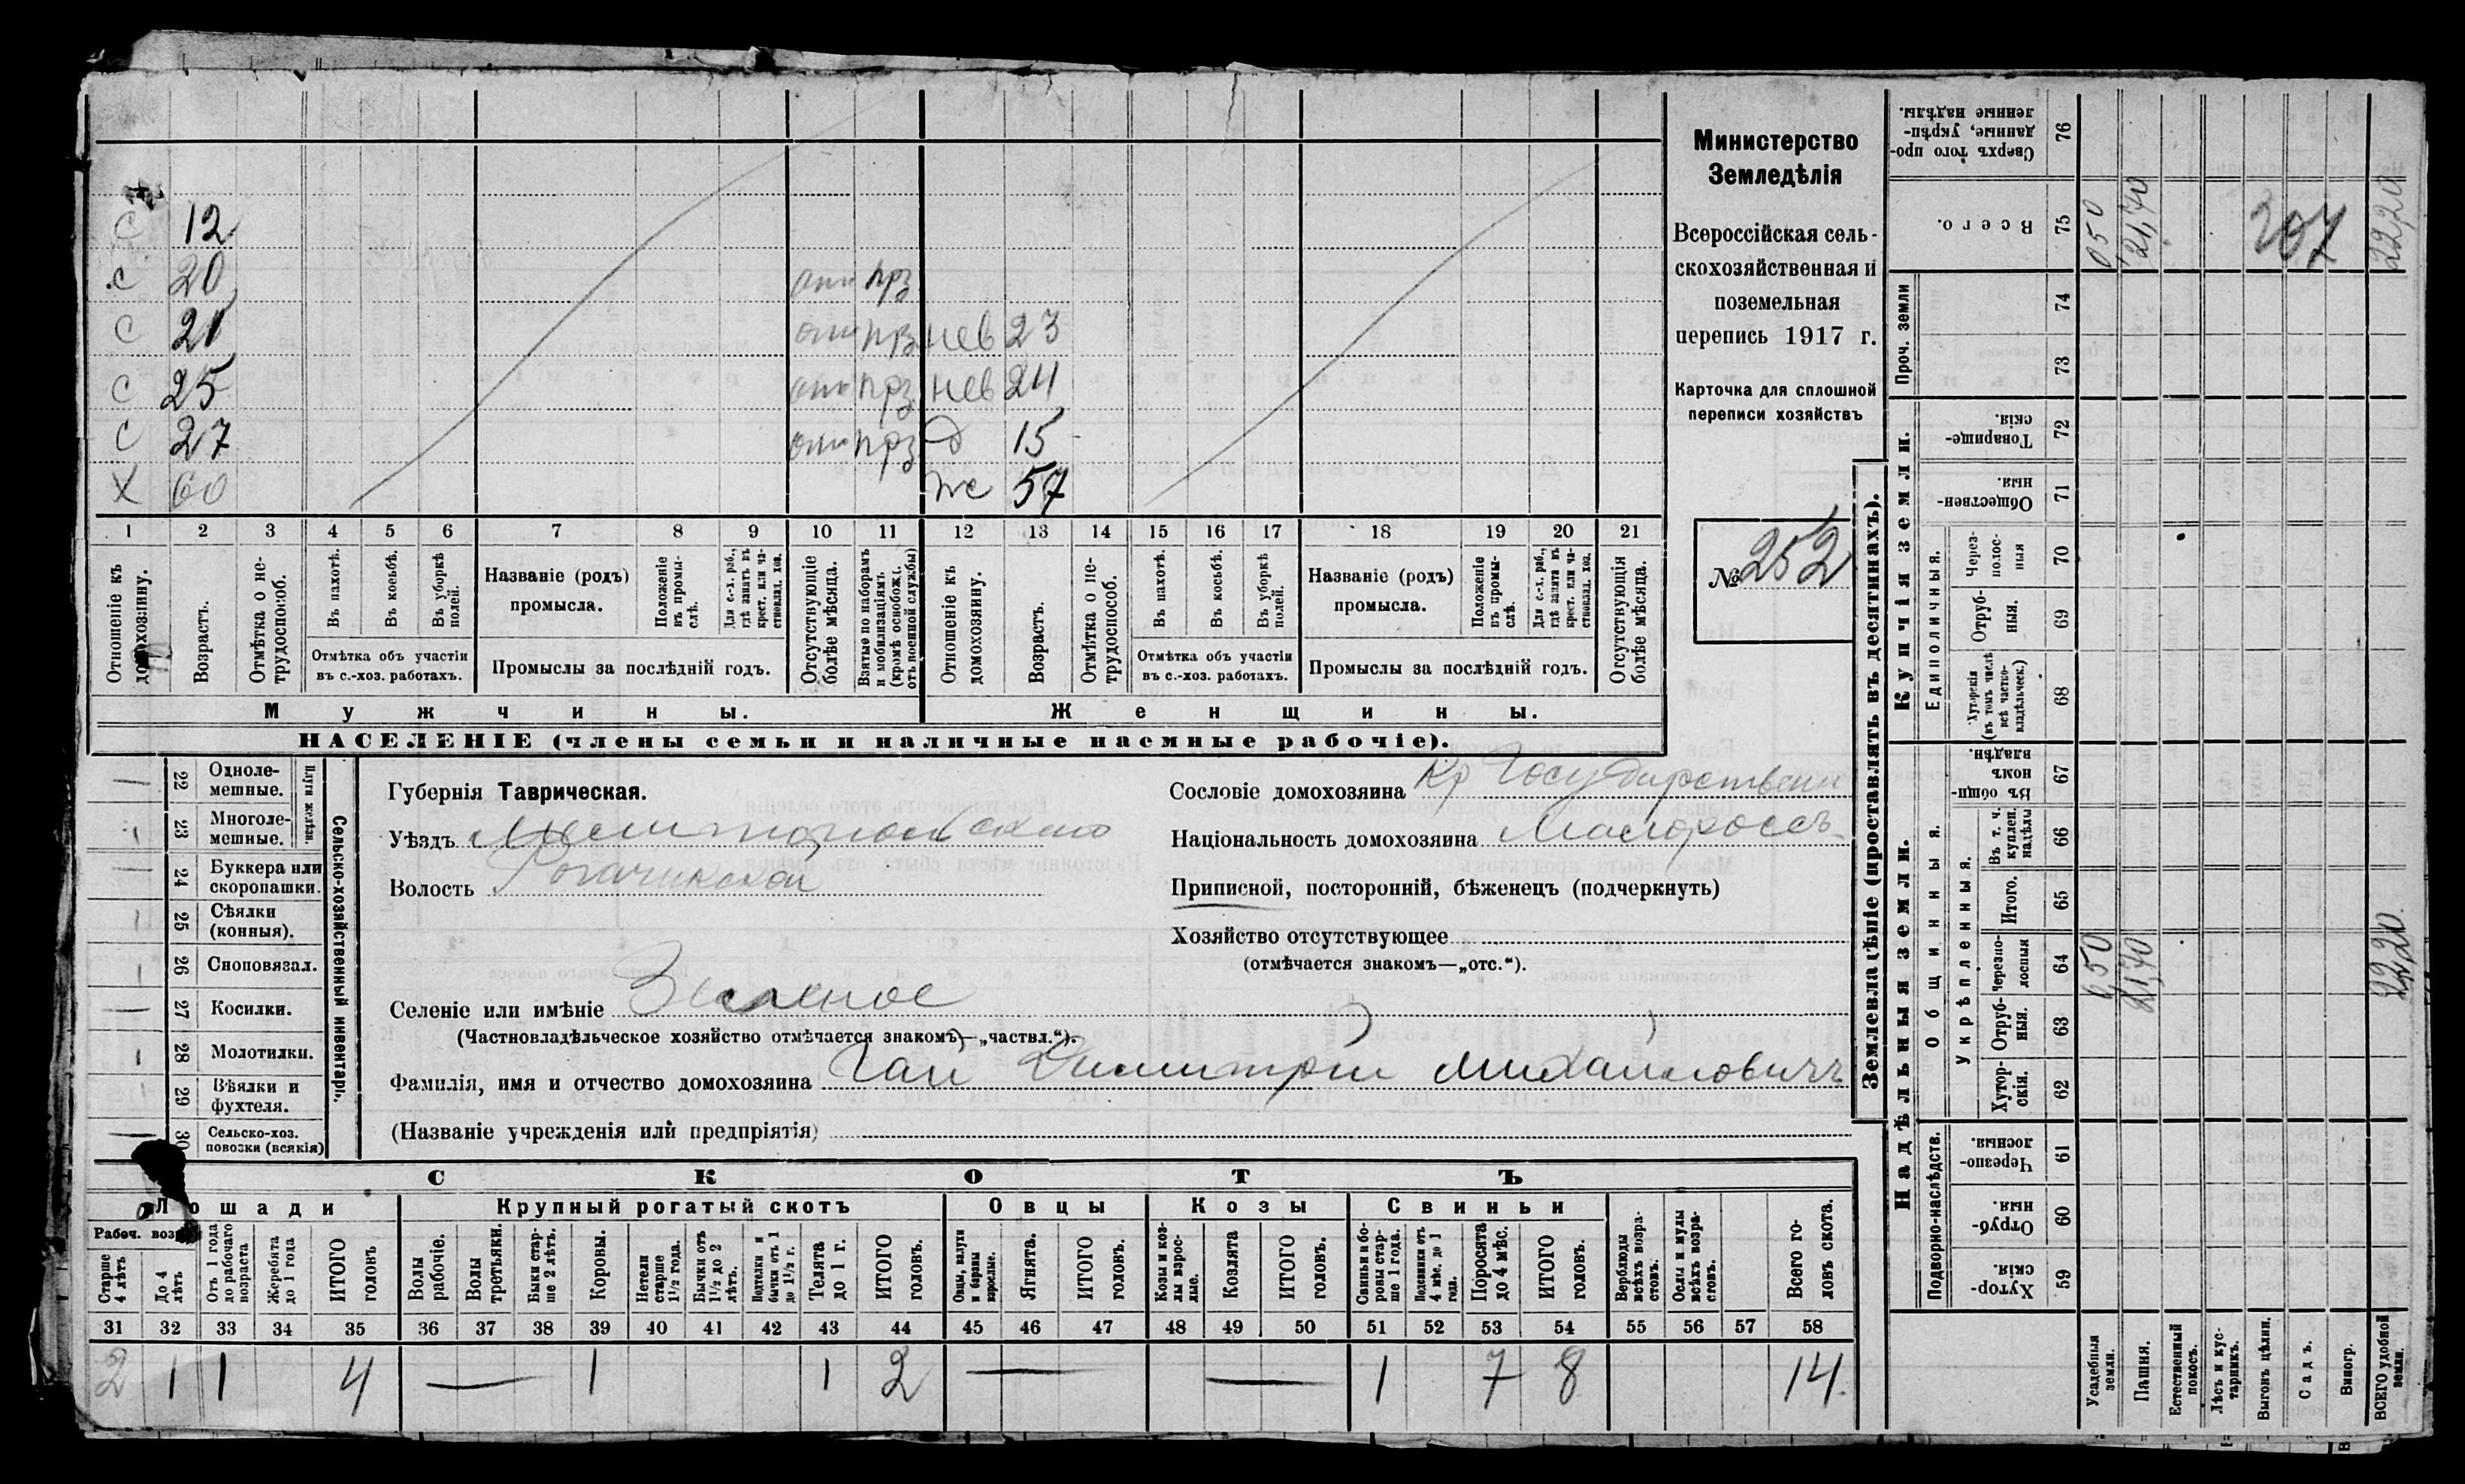 с 12
с 20 отс прз
с 21 отс прз нев 23
с 25 отс прз нев 24
с 27 отс прз д 15
х 60 же 57
1 2 3 4 5 6 7 8 9 10 11 12 13 14 15 16 17 18 19 20 21
Отношеніе къ домохозяину.
Возрастъ.
Отмѣтка о нетрудоспособ.
Въ пахотѣ.
Въ косьбѣ.
Въ уборкѣ полей.
Отмѣтка объ участіи въ с.-хоз. работахъ.
Названіе (родъ) промысла.
Положеніе въ промыслѣ.
Для с.-х. раб., гдѣ занятъ въ крест. или частновлад. хоз.
Промыслы за послѣдній годъ.
Отсутствующіе болѣе мѣсяца.
Взятые по наборамъ и мобилизаціямъ (кромѣ освобожд. отъ военной службы)
Отношеніе къ домохозяину.
Возрастъ.
Отмѣтка о нетрудоспособ.
Въ пахотѣ.
Въ косьбѣ.
Въ уборкѣ полей.
Отмѣтка объ участіи въ с.-хоз. работахъ.
Названіе (родъ) промысла.
Положеніе въ промыслѣ.
Для с.-х. раб., гдѣ занята въ крест. или частновлад. хоз.
Промыслы за послѣдній годъ.
Отсутствующія болѣе мѣсяца.
Мужчины. Женщины.
НАСЕЛЕНІЕ (члены семьи и наличные наемные рабочіе).
Министерство
Земледѣлія
Всероссійская сель-
скохозяйственная и
поземельная
перепись 1917 г.
Карточка для сплошной
переписи хозяйствъ
№ 252
Сельско-хозяйственный инвентарь.
Плуги желѣзн.
— 22 Однолемешные.
1 23 Многолемешные.
— 24 Буккера или скоропашки.
1 25 Сѣялки (конныя).
1 26 Сноповязал.
— 27 Косилки.
1 28 Молотилки.
1 29 Вѣялки и фухтеля.
— 30 Сельско-хоз. повозки (всякія)
Губернія Таврическая.
Уѣздъ Мелитопольскаго
Волость Рогачикской
Селеніе или имѣніе Зеленое
(Частновладѣльческое хозяйство отмѣчается знакомъ—„частвл.“).
Сословіе домохозяина Кр Государствен
Національность домохозяина Малороссъ
Приписной, посторонній, бѣженецъ (подчеркнуть)
Хозяйство отсутствующее
(отмѣчается знакомъ—„отс.“).
Фамилія, имя и отчество домохозяина Гай Димитрій Михайловичъ
(Названіе учрежденія или предпріятія)
СКОТЪ
Лошади Крупный рогатый скотъ Овцы Козы Свиньи
Рабоч. возр
Старше 4 лѣтъ
До 4 лѣтъ
Отъ 1 года до рабочаго возраста
Жеребята до 1 года
ИТОГО головъ
Волы рабочіе.
Волы третьяки.
Быки старше 2 лѣтъ.
Коровы.
Нетели старше 1½ года.
Бычки отъ 1½ до 2 лѣтъ.
Подтелки и бычки отъ 1 до 1½ г.
Телята до 1 г.
ИТОГО головъ.
Овцы, валухи и бараны взрослые.
Ягнята.
ИТОГО головъ.
Козы и козлы взрослые.
Козлята
ИТОГО головъ.
Свиньи и боровы старше 1 года.
Подсвинки отъ 4 мѣс. до 1 года.
Поросята до 4 мѣс.
ИТОГО головъ.
Верблюды всѣхъ возрастовъ.
Ослы и мулы всѣхъ возрастовъ.
Всего головъ скота.
31 32 33 34 35 36 37 38 39 40 41 42 43 44 45 46 47 48 49 50 51 52 53 54 55 56 57 58
2 1 1 4 — 1 1 2 — — 1 7 8 14.
Землевладѣніе (проставлять въ десятинахъ).
Надѣльныя земли. Купчія земли.
Подворно-наслѣдств.
Общинныя.
Укрѣпленныя.
Единоличныя.
Проч. земли
76 Сверхъ того проданные, укрѣпленные надѣлы.
75 Всего.
74
73
72 Товарищескія.
71 Общественныя.
70 Черезполосныя
69 Отрубныя.
68 Хуторскія (въ томъ числѣ всѣ частновладѣльческ.)
67 Въ общинномъ владѣн.
66 Въ т. ч. куплен. надѣлы
65 Итого.
64 Черезполосныя
63 Отрубныя.
62 Хуторскія.
61 Черезполосныя.
60 Отрубныя.
59 Хуторскія.
0,50 21,70 207 22,20
0,50 21,70 22,20
Усадебныя земли.
Пашня.
Естественный покосъ.
Лѣсъ и кустарникъ.
Выгонъ цѣлин.
Садъ.
Виногр.
ВСЕГО удобной земли.